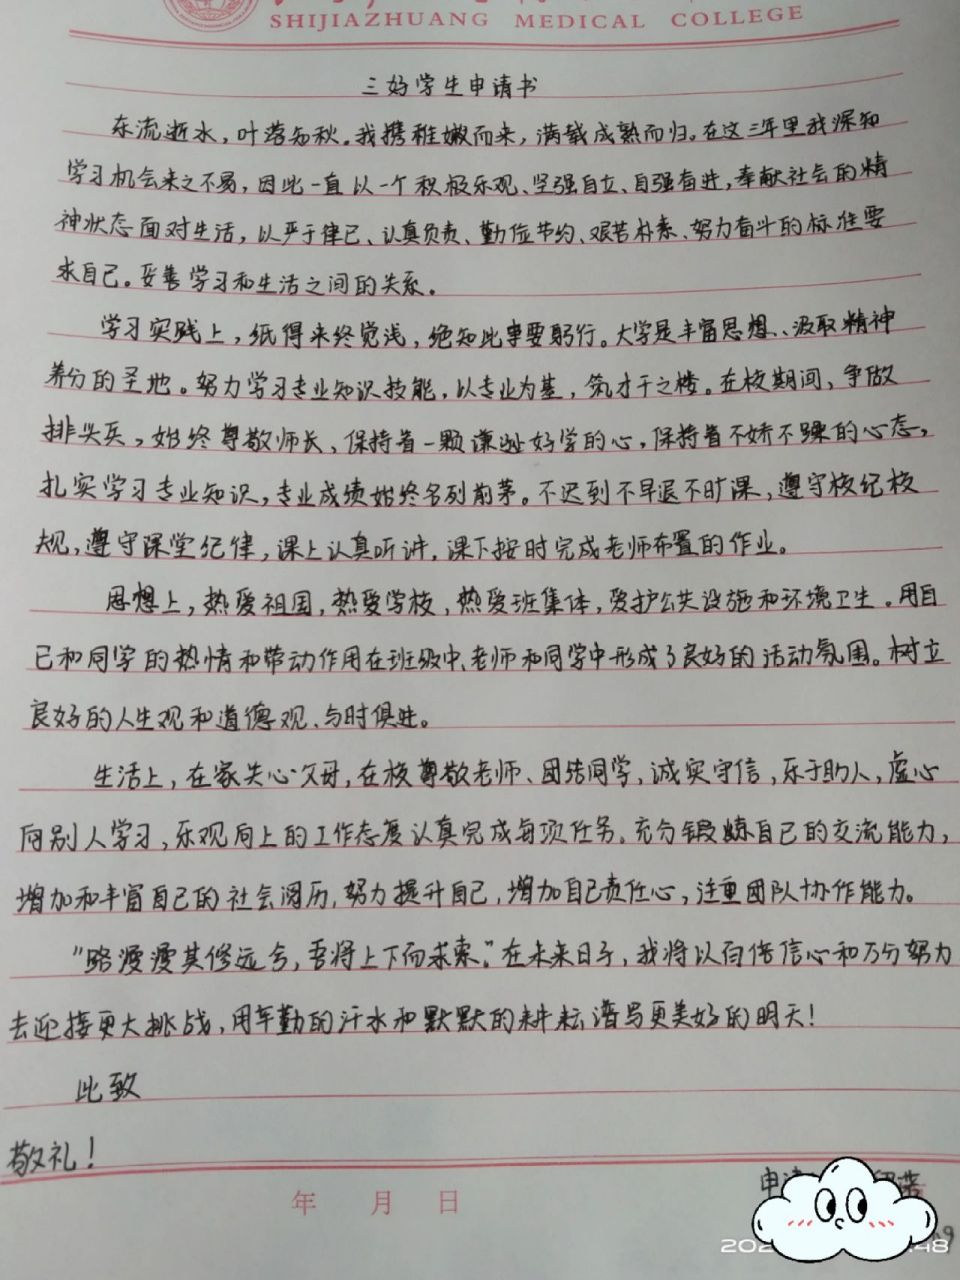 SHIJIAZHUANG MEDICAL COLLEGE
三好学生申请书
东流逝水，叶落知秋。我携稚嫩而来，满载成熟而归。在这三年里我深知
学习机会来之不易，因此一直以一个积极乐观、坚强自立、自强奋进，奉献社会的精
神状态面对生活，以严于律己、认真负责、勤俭节约、艰苦朴素、努力奋斗的标准要
求自己。妥善学习和生活之间的关系。
学习实践上，纸得来终觉浅，绝知此事要躬行。大学是丰富思想、汲取精神
养分的圣地。努力学习专业知识技能，以专业为基，筑才干之楼。在校期间，争做
排头兵，始终尊敬师长、保持着一颗谦逊好学的心，保持着不娇不躁的心态，
扎实学习专业知识，专业成绩始终名列前茅。不迟到不早退不旷课，遵守校纪校
规，遵守课堂纪律，课上认真听讲，课下按时完成老师布置的作业。
思想上，热爱祖国，热爱学校，热爱班集体，爱护公共设施和环境卫生。用自
己和同学的热情和带动作用在班级中、老师和同学中形成了良好的活动氛围。树立
良好的人生观和道德观、与时俱进。
生活上，在家关心父母，在校尊敬老师、团结同学，诚实守信，乐于助人，虚心
向别人学习，乐观向上的工作态度认真完成每项任务。充分锻炼自己的交流能力，
增加和丰富自己的社会阅历，努力提升自己，增加自己责任心，注重团队协作能力。
“路漫漫其修远兮，吾将上下而求索。”在未来日子，我将以百倍信心和万分努力
去迎接更大挑战，用辛勤的汗水和默默的耕耘谱写更美好的明天！
此致
敬礼！
申
年 月 日
48